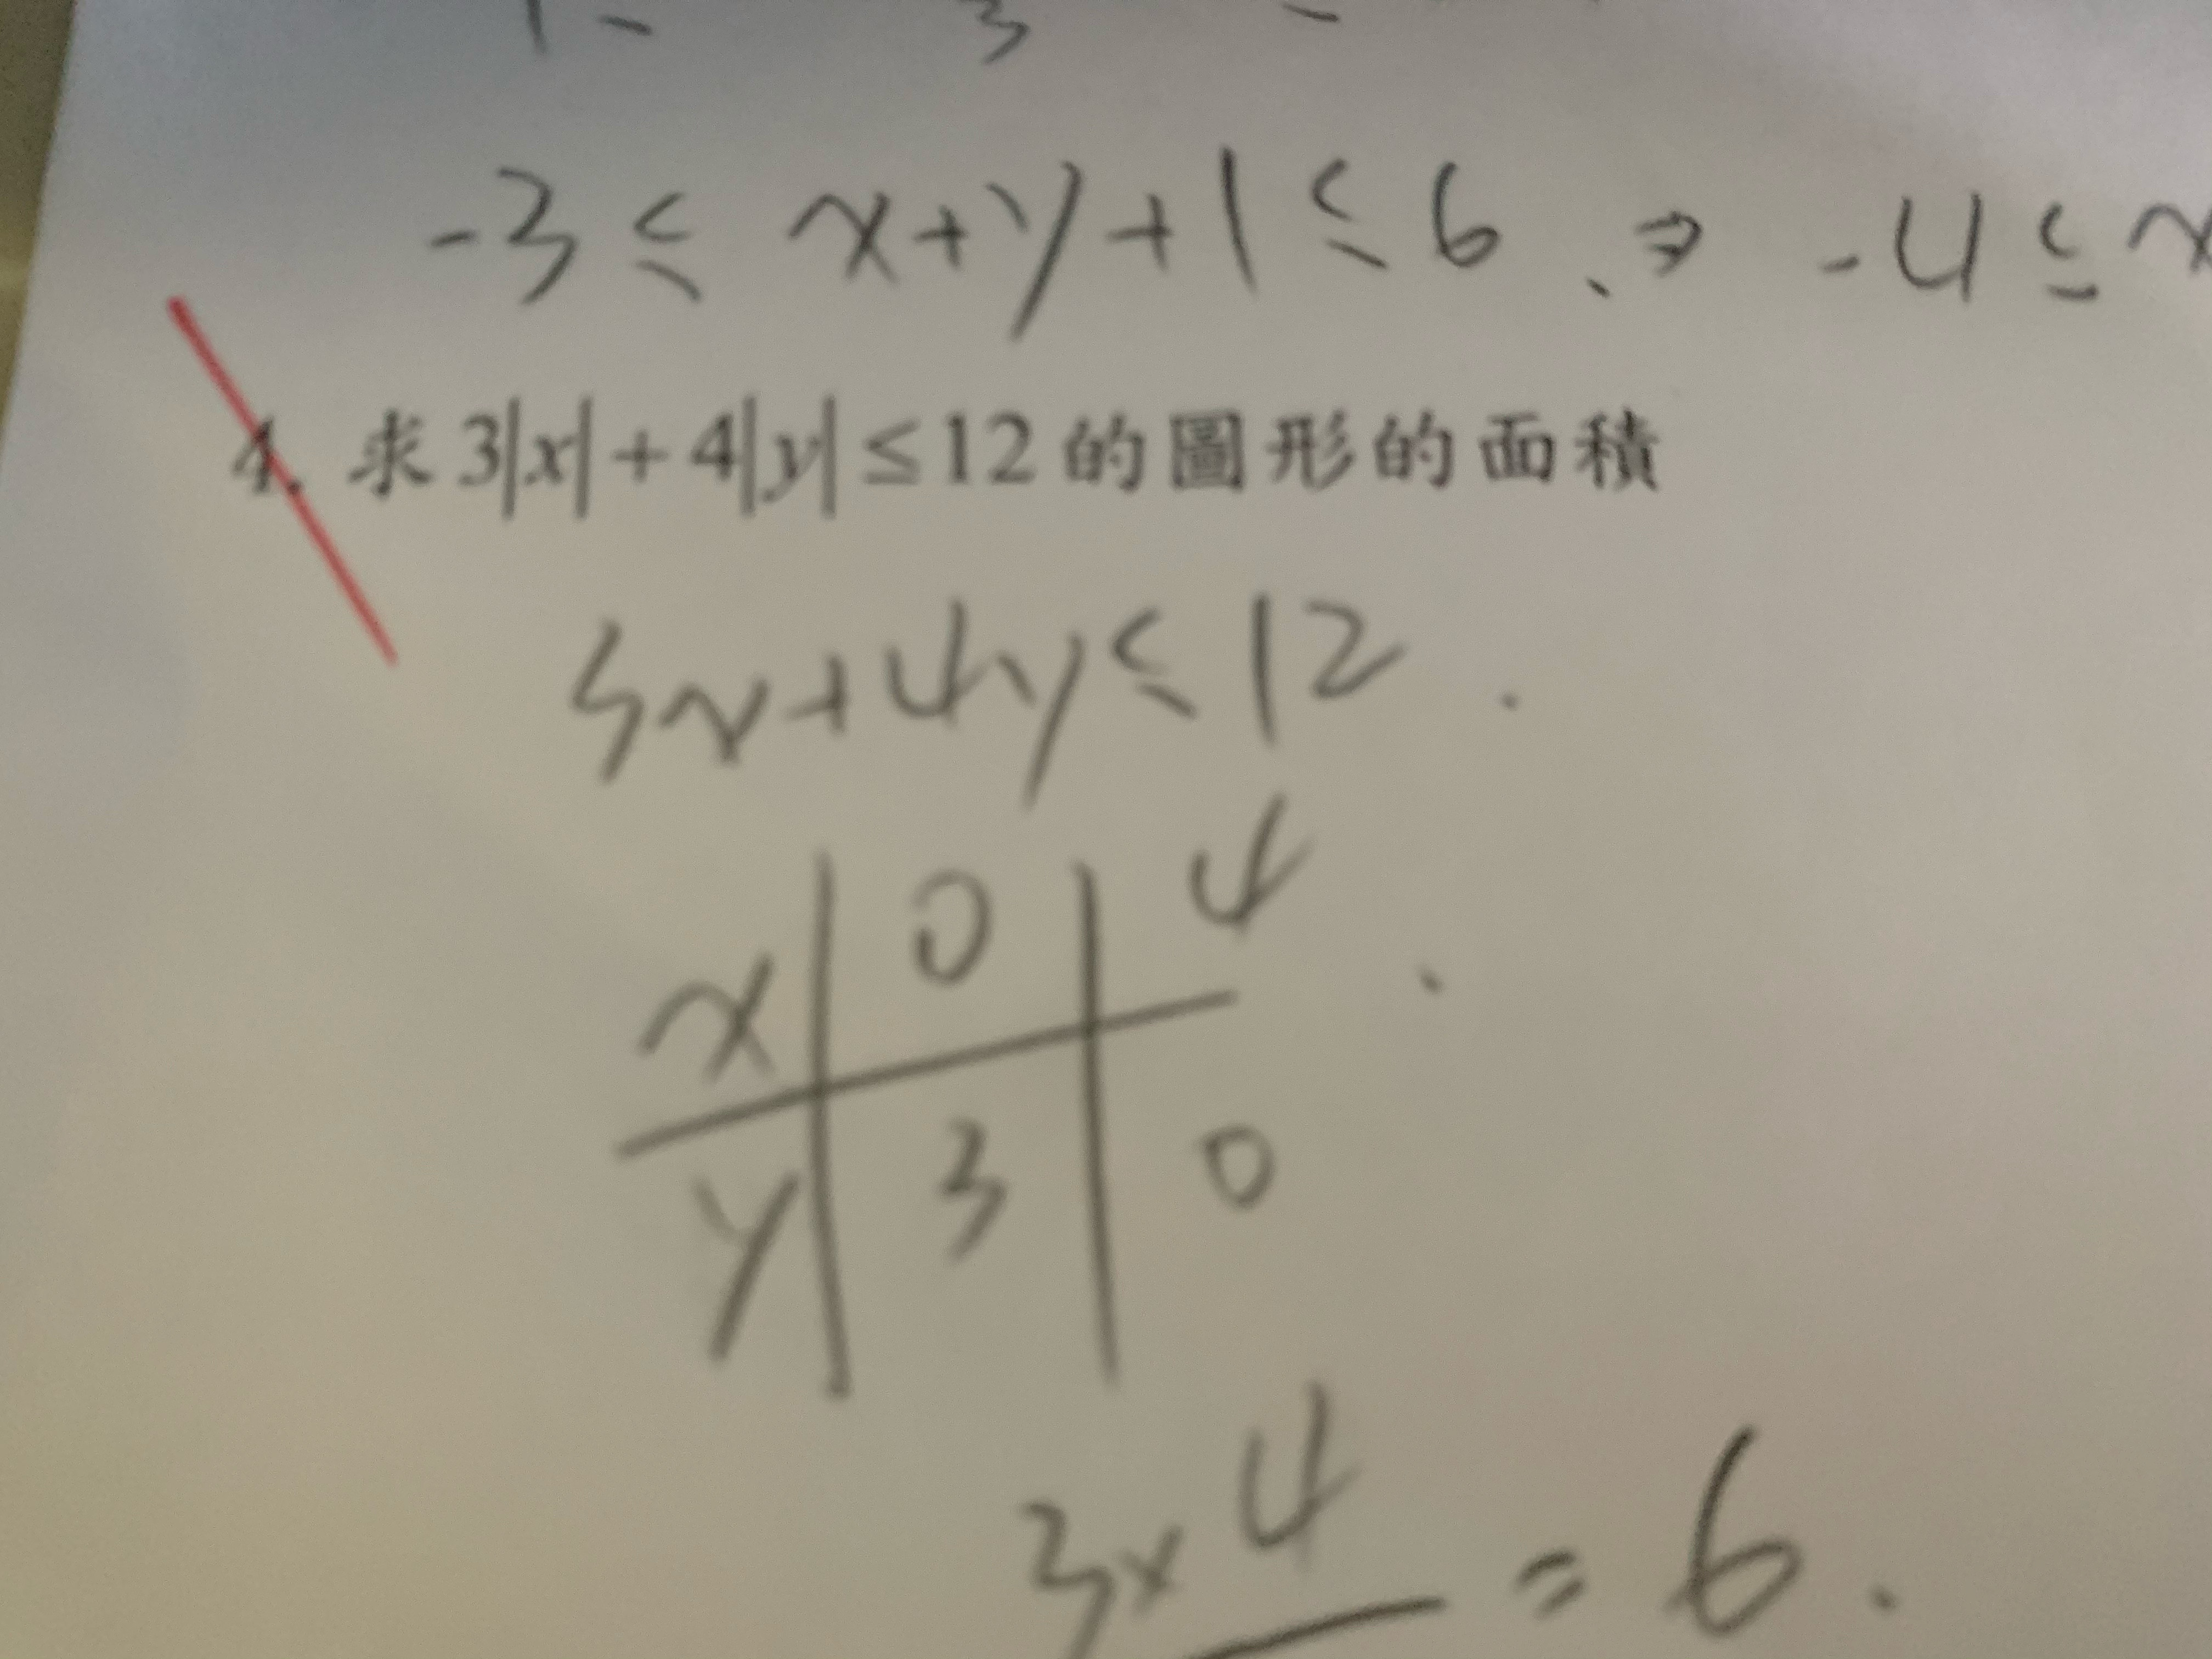 -3 ≤ x+y+1 ≤ 6 . ⇒ -4 ≤ x
4. 求 3|x| + 4|y| ≤ 12 的圖形的面積
3x+4y ≤ 12 .
x 0 4
y 3 0
3x4 = 6 .